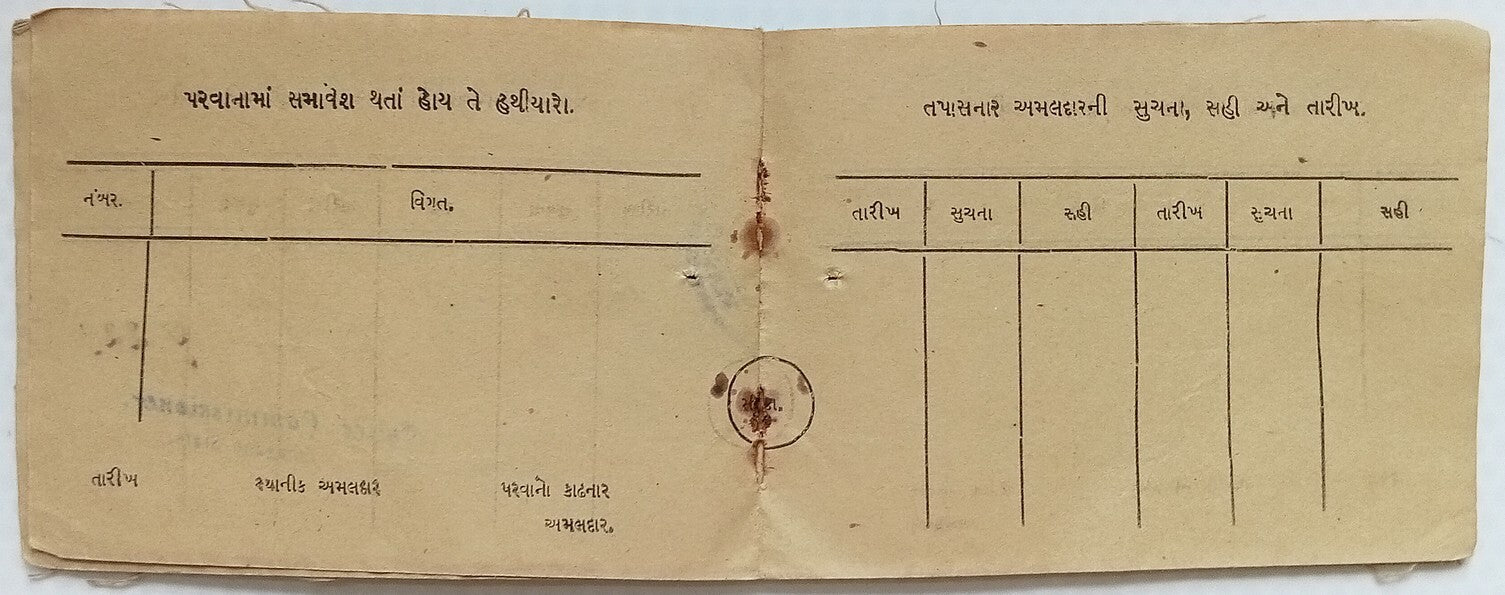 પરવાનામાં સમાવેશ થતાં હોય તે હથીયારો.
નંબર. વિગત.
તારીખ સ્થાનીક અમલદાર પરવાનો કાઢનાર
અમલદાર.
તપાસનાર અમલદારની સુચના, સહી અને તારીખ.
તારીખ સુચના સહી તારીખ સૂચના સહી